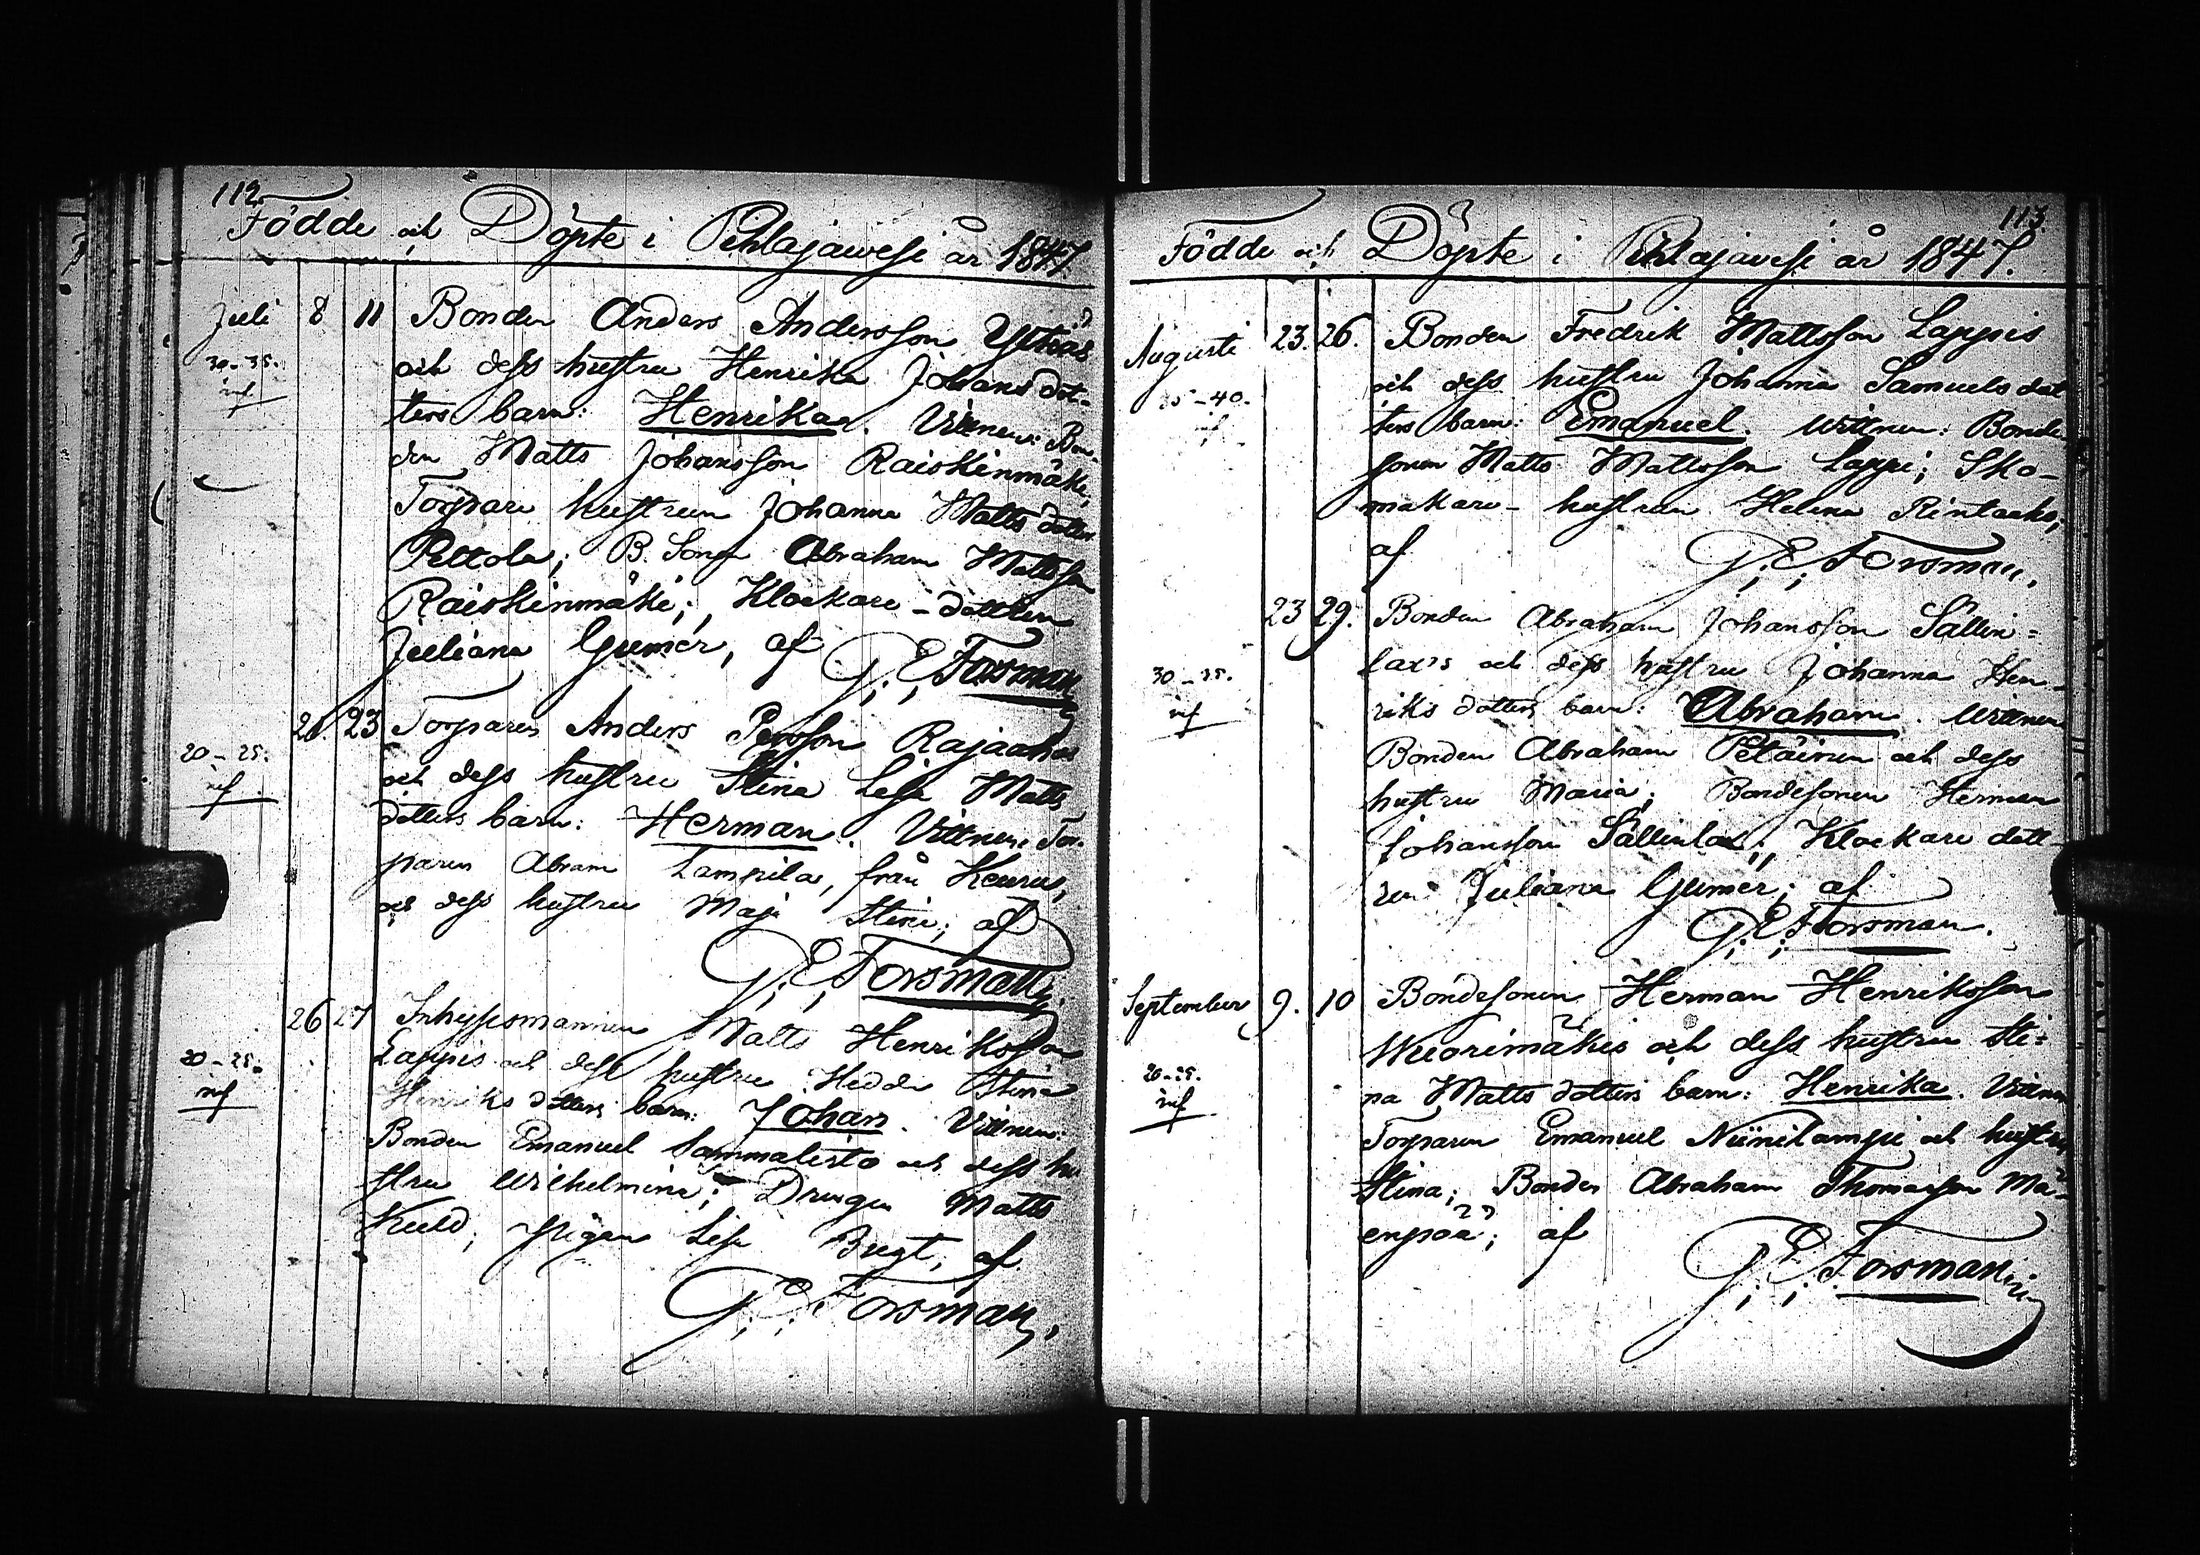 112.
Födde och Döpte i Pihlajawesi år 1847.
Juli 8 11 Bonden Anders Andersson
30-35. och dess hustru Henrika Johans dot-
nif ters barn: Henrika. Vittnen: Bon-
den Matts Johansson Raiskinmäki,
Torpare hustrun Johanna Matts dotter
Pettola; B. Sonen Abraham Mattsson
Raiskinmäki; Klockare-dottren
Juliana Gumér, af
G. E. Forsman
23 Torparen Anders Persson Rajaaho
20-25. och dess hustru Stina Lisa Matts
nif dotters barn: Herman. Vittnen: Tor-
paren Abram Lampila, från Keuru,
och dess hustru Maja Stina; af
G. E. Forsman
26 27 Inhysesmannen Matts Henriksson
20-25. Lappis och dess hustru Hedda Stina
nif Henriks dotters barn: Johan. Vittnen:
Bonden Emanuel Sammalisto och dess hu-
stru Wilhelmina; Drengen Matts
Kuld; pigan Lisa af
G. E. Forsman,
113.
Födde och Döpte i Pihlajavesi år 1847.
Augusti 23. 26. Bonden Fredrik Mattsson Lappis
35-40. och dess hustru Johanna Samuels dot
nif ters barn: Emanuel. Wittnen: Bonde
sonen Matts Mattsson Lappi; Sko-
makare-hustrun Helena Rintaaho;
af G. E. Forsman,
23 29. Bonden Abraham Johansson Sällin=
30-35. lax's och dess hustru Johanna Hen-
nif riks dotters barn: Abraham. Wittnen
Bonden Abraham Petäinen och dess
hustru Maria; Bondesonen Herman
Johansson Sällinlax; Klockare dott-
ren Juliana Gumér; af
G. E. Forsman.
September 9. 10 Bondesonen Herman Henriksson
Wuorimäkis och dess hustru Sti=
20-25. na Matts dotters barn: Henrika. Vittnen
nif Torparen Emanuel Niinilampi och hustru
Stina; Bonden Abraham Thomasson Mä-
enpää; af
G. E. Forsman